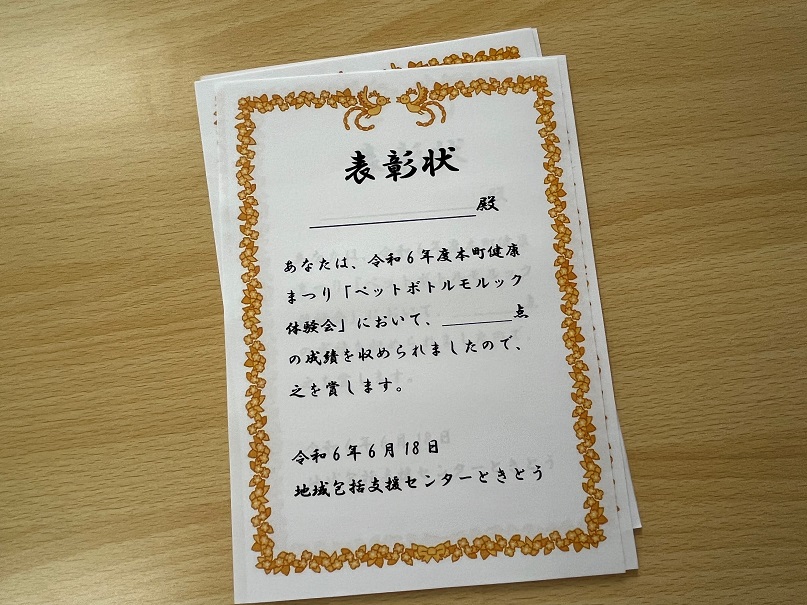 表彰状
殿
あなたは、令和6年度本町健康
まつり「ペットボトルモルック
体験会」において、________点
の成績を収められましたので、
之を賞します。
令和6年6月18日
地域包括支援センターときとう